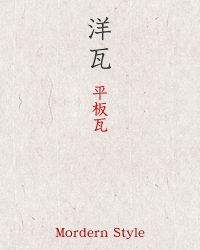 洋瓦
平板瓦
Mordern Style